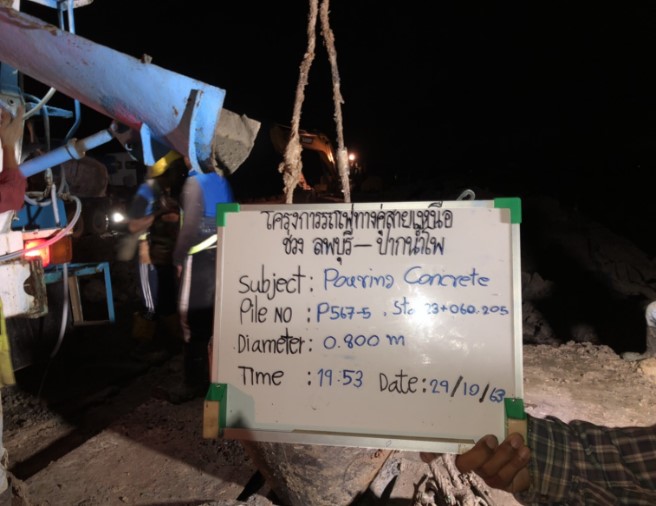 โครงการรถไฟทางคู่สายเหนือ
ช่วง ลพบุรี – ปากน้ำโพ
Subject : Pouring Concrete
Pile NO : P567-5 . Sta 23+060.205
Diameter : 0.800 m
Time : 19:53 Date : 29/10/63